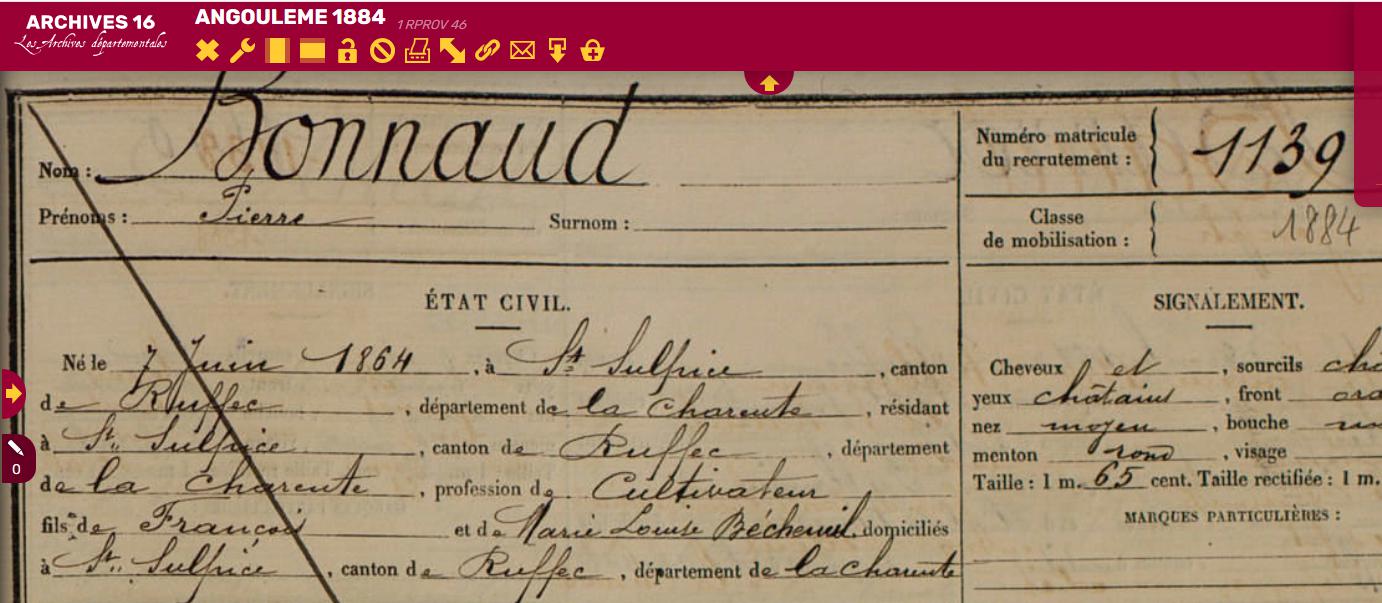 ARCHIVES 16
Les Archives départementales
ANGOULEME 1884 1 RPROV 46
Nom : Bonnaud
Prénoms : Pierre Surnom :
Numéro matricule du recrutement : 1139
Classe de mobilisation : 1884
ÉTAT CIVIL.
Né le 7 Juin 1864, à St Sulpice, canton
de Ruffec, département de la Charente, résidant
à St Sulpice, canton de Ruffec, département
de la Charente, profession de Cultivateur
fils de François et de Marie Louise Bécheuil, domiciliés
à St Sulpice, canton de Ruffec, département de la Charente
SIGNALEMENT.
Cheveux et, sourcils
yeux châtains, front
nez moyen, bouche
menton rond, visage
Taille : 1 m. 65 cent. Taille rectifiée : 1 m.
MARQUES PARTICULIÈRES :
0